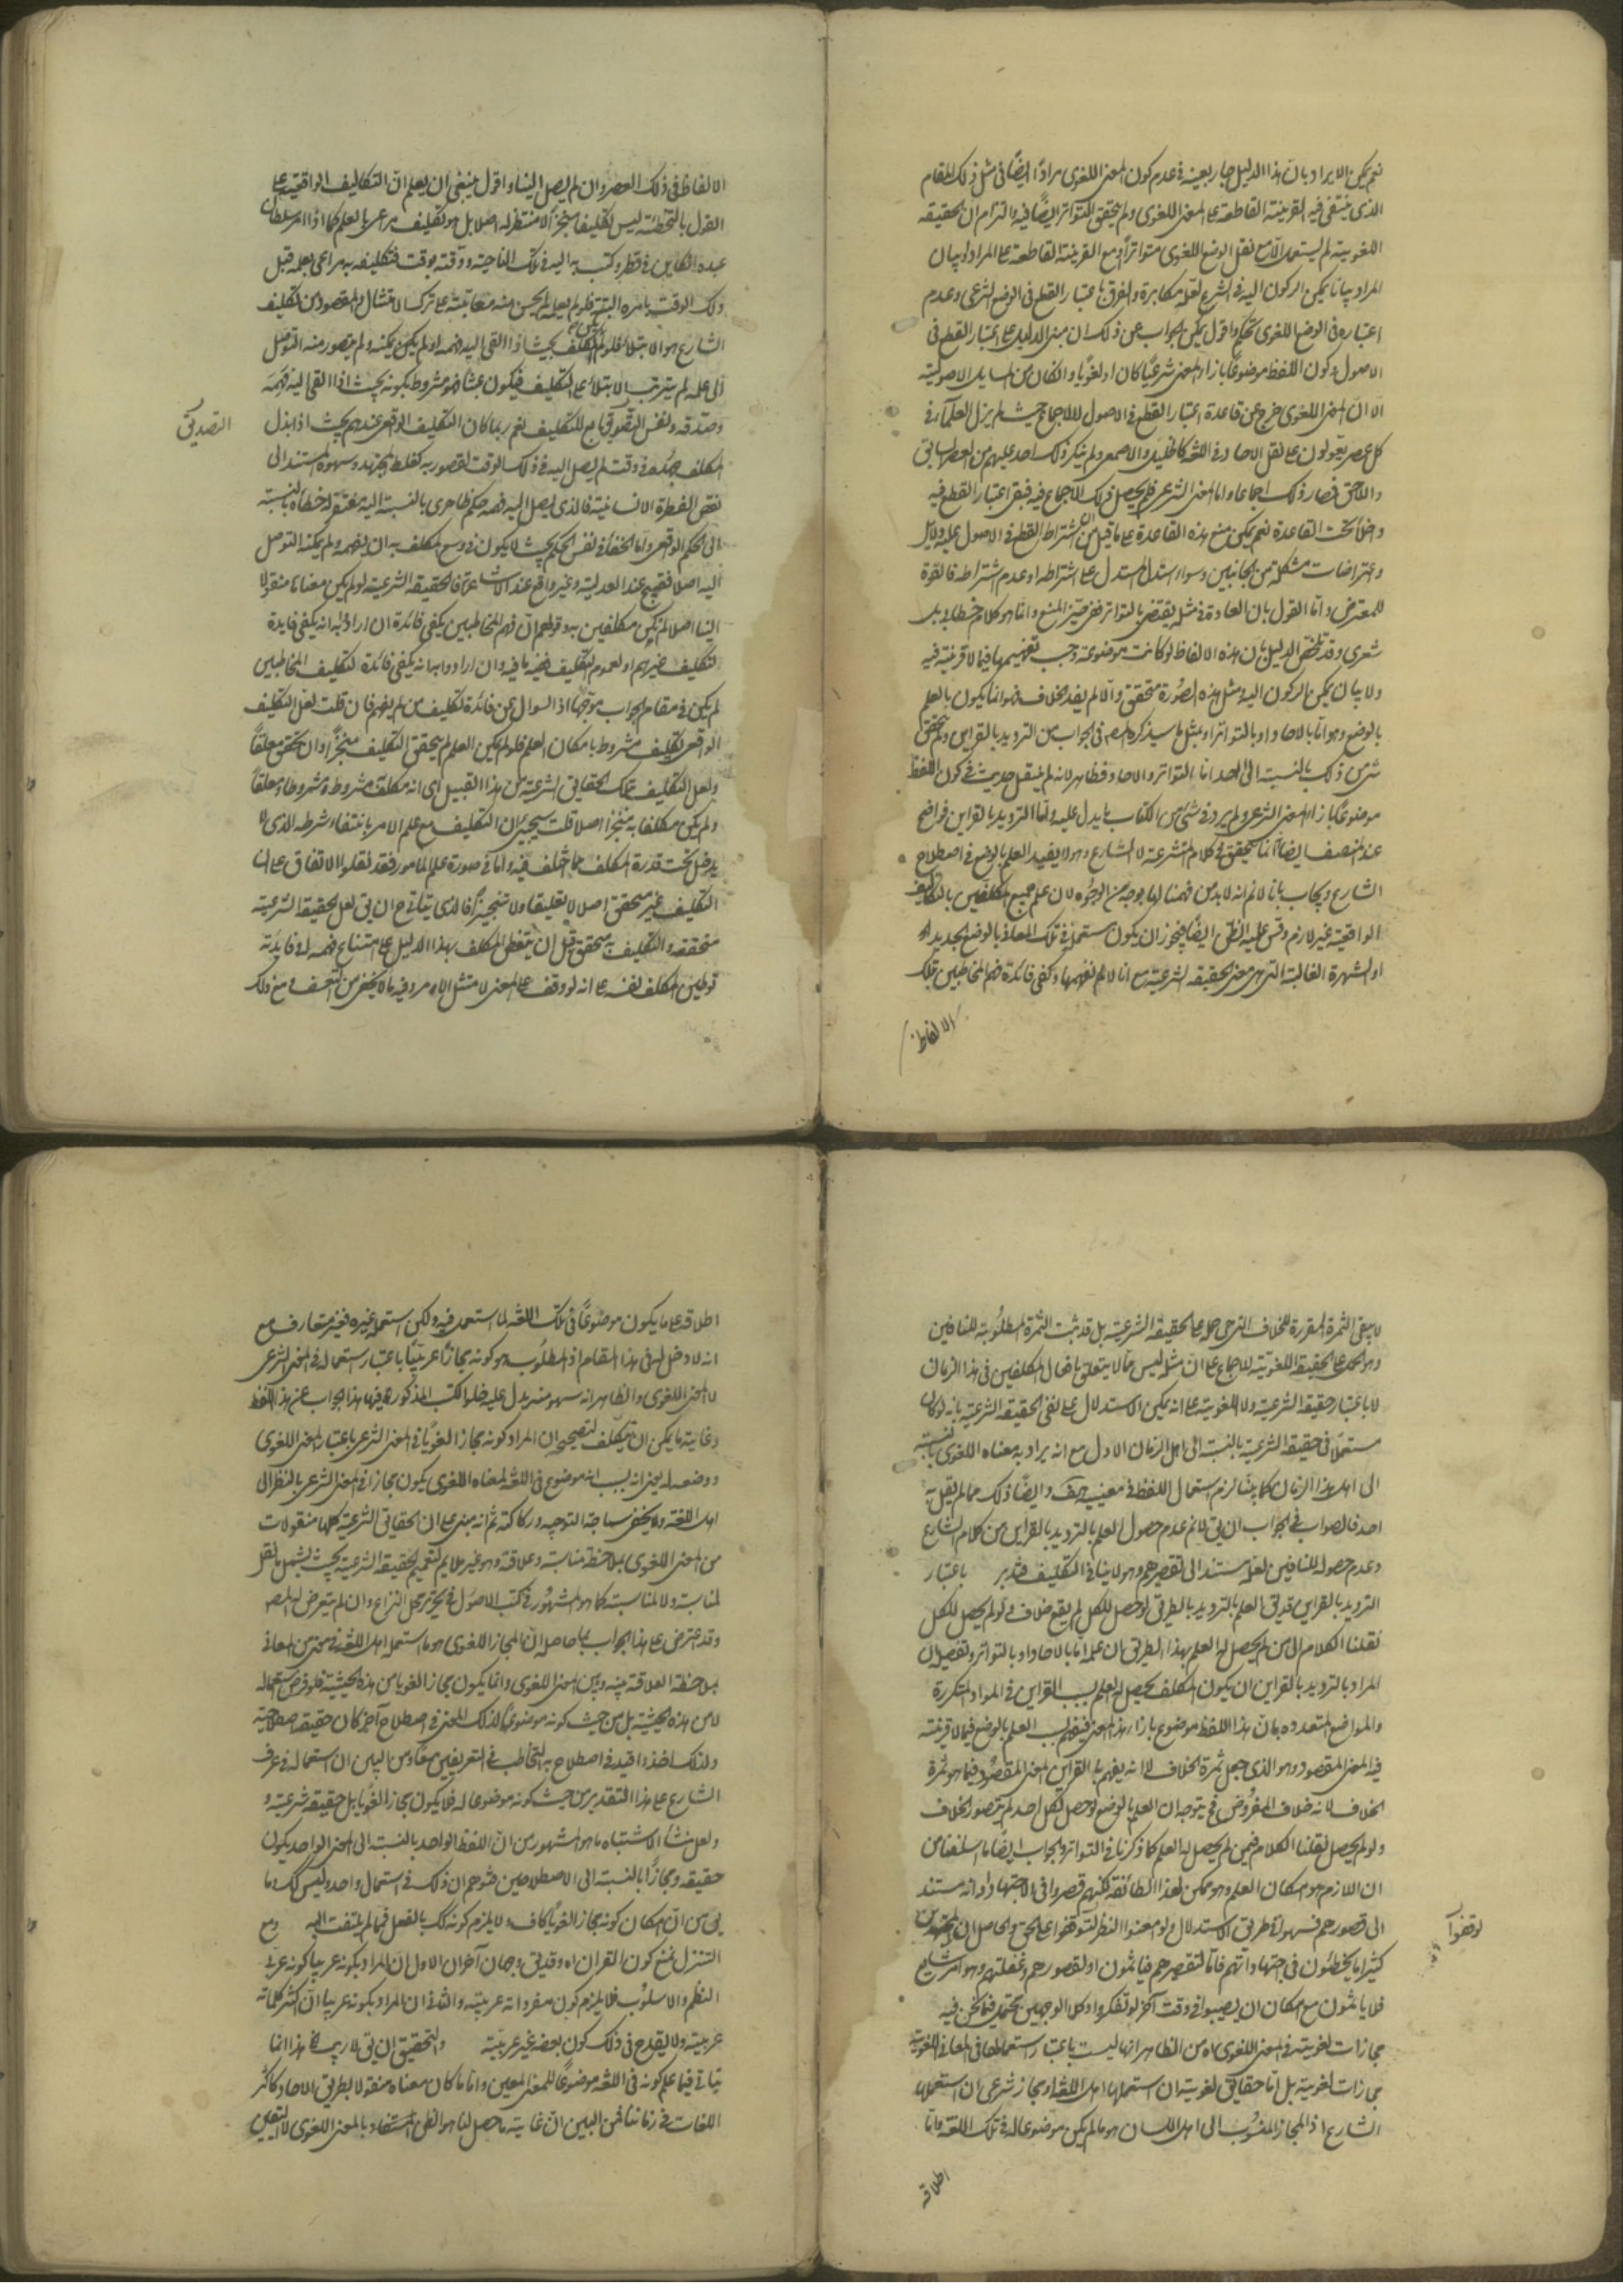 نعم يمكن الايراد بان هذا الدليل جار بعينه في عدم كون المعنى اللغوى مرادا ايضًا فى مثل ذلك المقام
الذى ينتفى فيه القرينة القاطعة على المعنى اللغوى ولم يتحقق التواتر ايضًا فيه والتزام ان الحقيقة
اللغوية لم يستعمل الا مع نقل الوضع اللغوى متواترًا او مع القرينة القاطعة على المراد او بيان
المراد بيانا يمكن الركون اليه فى الشرع لعله مكابرة والفرق باعتبار القطع فى الوضع الشرعى وعدم
اعتباره فى الوضع اللغوى تحكم واقول يمكن الجواب عن ذلك ان مبنى الدليل على اعتبار القطع فى
الاصول وكون اللفظ موضوعًا بازاء المعنى شرعيًا كان او لغويًا وان كان من المسايل الاصولية
الا ان المعنى اللغوى خرج عن قاعدة اعتبار القطع فى الاصول للاجماع حيث لم يزل العلماء فى
كل عصر يعولون على نقل الاحاد فى اللغة كالخليل والاصمعى ولم ينكر ذلك احد عليهم من العصر السابق
واللاحق فصار ذلك اجماعا واما المعنى الشرعى فلم يحصل ذلك الاجماع فيه فبقى اعتبار القطع فيه
داخلا تحت القاعدة نعم يمكن منع هذه القاعدة على ما قيل من ان اشتراط القطع فى الاصول عليه دلايل
واعتراضات مشكلة من الجانبين وسواء استدل المستدل على اشتراطه او عدم اشتراطه فالقوة
للمعترض واما القول بان العادة فى مثله يقتضى بالتواتر ففى حيز المنع وانما هو كلام خطابى بل
شعرى وقد يلخص الدليل بان هذه الالفاظ لو كانت موضوعة وجب تفهيمها فيما لا قرينة فيه
ولا بيان يمكن الركون اليه ومثل هذه الصورة متحقق والا لم يفد الخلاف فهو انما يكون بالعلم
بالوضع وهو اما بالاحاد او بالتواتر او بمثل ما سيذكره المصر فى الجواب من الترديد بالقراين ولم يتحقق
شىء من ذلك بالنسبة الى احد اما التواتر والاحاد فظاهر لانه لم ينقل حديث فى كون اللفظ
موضوعًا بازاء المعنى الشرعى ولم يرد فى شىء من الكتاب ما يدل عليه واما الترديد بالقراين فواضح
عند المنصف ايضًا انما يتحقق فى كلام المتشرعة لا الشارع وهو لا يفيد العلم بالوضع فى اصطلاح
الشارع ويجاب بانا لا نم انه لا بد من فهمنا لها بوجه من الوجوه لان علم جميع المكلفين بالتكاليف
الواقعية غير لازم وقس عليه الظن ايضًا فيجوز ان يكون مستعملة فى تلك المعانى بالوضع الجديد
او الشهرة الغالبة التى هى معنى الحقيقة الشرعية مع انا لا نم تفهيمها وكفى فائدة فهم المخاطبين بتلك
الالفاظ
الالفاظ فى ذلك العصر وان لم يصل الينا واقول ينبغى ان يعلم ان التكاليف الواقعية على
القول بالتخطئة ليس تكليفا منجزًا لا منتظر له اصلا بل هو تكليف مراعى بالعلم كما اذا امر سلطان
عبده الكاين فى قطر وكتب به اليه فى تلك الناحية ووقته بوقت فتكليفه به مراعى بعلمه قبل
ذلك الوقت بامره البتة فلو لم يعلم لم يحسن منه معاتبته على ترك الامتثال والمقصود من تكليف
الشارع هو الابتلاء فلو لم يكن المكلف بحيث اذا القى اليه فهمه او لم يكن يمكنه ولم يتصور منه التوصل
الى علمه لم يترتب الابتلاء على التكليف فيكون عبثا فهو مشروط بكونه بحيث اذا القى اليه فهمه
وصدقه ونفس التصديق تابع للتكليف نعم ربما كان التكليف الواقعى عندهم بحيث اذا بذل
التصديق
المكلف جهده فى وقت لم يصل اليه فى ذلك الوقت لقصور به كغلط المجتهد وسهوه المستند الى
نقص الفطرة الانسانية فالذى يصل اليه فهمه حكم ظاهرى بالنسبة اليه مغتفر له خطاؤه بالنسبة
الى الحكم الواقعى واما الخفاء فى نفس الحكم بحيث لا يكون فى وسع المكلف به ان يفهمه ولم يمكنه التوصل
اليه اصلا فقبيح عند العدلية وغير واقع عند الاشاعرة فالحقيقة الشرعية لو لم يكن معناها منقولا
الينا اصلا لم نكن مكلفين به وقولهم ان فهم المخاطبين يكفى فائدة ان ارادوا به انه يكفى فايدة
لتكليف غيرهم او لعموم التكليف ففيه ما فيه وان ارادوا به انه يكفى فائدة لتكليف المخاطبين
لم يكن فى مقام الجواب موجها اذ السوال عن فائدة تكليف من لم يفهم فان قلت لعل التكليف
الواقعى تكليف مشروط بامكان العلم فلو لم يكن العلم لم يتحقق التكليف منجزًا وان تحقق معلقًا
ولعل التكليف بتلك الحقايق الشرعية من هذا القبيل اى انه مكلف مشروطه مشروطا ومعلقًا
ولم يكن مكلفا به منجزًا اصلا قلت سيجىء ان التكليف مع علم الامر بانتفاء شرطه الذى لا
يدخل تحت قدرة المكلف مما اختلف فيه واما فى صورة علم المامور فقد نقلوا الاتفاق على ان
التكليف غير متحقق اصلا لا تعليقا ولا تنجيزًا فالذى يتاتى ح ان يق لعل الحقيقة الشرعية
متحققة والتكليف به متحقق قبل ان يتفطن المكلف بهذا الدليل على امتناع فهمه له وفايدته
توطين المكلف نفسه على انه لو وقف على المعنى لامتثل الامر وفيه ما لا يخفى من التعسف ومع ذلك
لا يبقى الثمرة المقررة للخلاف التى هى حمله على الحقيقة الشرعية بل قد ثبت الثمرة المطلوبة للنافين
وهو الحمل على الحقيقة اللغوية للاجماع على ان مثله ليس مما لا يتعلق بافعال المكلفين فى هذا الزمان
لا باعتبار حقيقة الشرعية ولا اللغوية على انه يمكن الاستدلال على نفى الحقيقة الشرعية بانه لو كان
مستعملًا فى حقيقة الشرعية بالنسبة الى اهل الزمان الاول مع انه يراد به معناه اللغوى بالنسبة
الى اهل هذا الزمان كما بينا لزم استعمال اللفظ فى معنييه وايضًا ذلك مما لم يقل به
احد فالصواب فى الجواب ان يق لا نم عدم حصول العلم بالترديد بالقراين من كلام الشارع
وعدم حصوله للنافين لعله مستند الى تقصيرهم وهو لا ينافى التكليف فتدبر باعتبار
الترديد بالقراين وقد يق العلم بالترديد بالطرق لو حصل للكل لم يقع خلاف ولو لم يحصل للكل
نقلنا الكلام الى من لم يحصل له العلم بهذا الطريق بان علمه اما بالاحاد او بالتواتر وتفصيله ان
المراد بالترديد بالقراين ان يكون المكلف يحصل له العلم بسبب القراين فى المواد المتكررة
والمواضع المتعدده بان هذا اللفظ موضوع بازاء هذا المعنى فيفهم بسبب العلم بالوضع فيما لا قرينة
فيه المعنى المقصود وهو الذى جعل ثمرة الخلاف لا انه يفهم بالقراين المعنى المقصود فيما هو ثمرة
الخلاف لانه خلاف المفروض فح يتوجه ان العلم بالوضع لو حصل لكل احد لم يتصور الخلاف
ولو لم يحصل نقلنا الكلام فيمن لم يحصل له العلم كما ذكرنا فى التواتر والجواب ايضًا ما اسلفنا من
ان اللازم هو امكان العلم وهو ممكن لهذا الطائفة لكنهم قصروا فى الاجتهاد او انه مستند
الى قصورهم فسهوا فى طريق الاستدلال ولو امعنوا النظر لتوقفوا على الحق والحاصل ان المجتهدين
لوقفوا
كثيرًا ما يخطئون فى اجتهاداتهم فاما لتقصيرهم فياثمون او لقصورهم وغفلتهم وهو امر شايع
فلا ياثمون مع امكان ان يصيبوا فى وقت آخر لو تفكروا وكلا الوجهين محتمل فيما نحن فيه
مجازات لغوية فى المعنى اللغوى اه من الظاهر انها ليست باعتبار استعمالها فى المعانى اللغوية
مجازات لغوية بل اما حقايق لغوية ان استعملها اهل اللغة او مجاز شرعى ان استعملها
الشارع اذ المجاز المنسوب الى اهل اللسان هو ما لم يكن موضوعا له فى تلك اللغة واما
اطلاقه
اطلاقه على ما يكون موضوعًا فى تلك اللغة لما استعمل فيه ولكن استعمله غيره فغير متعارف مع
انه لا دخل له فى هذا المقام اذ المطلوب هو كونه مجازًا عربيًا باعتبار استعماله فى المعنى الشرعى
لا المعنى اللغوى والظاهر انه سهو منه يدل عليه خلو الكتب المذكورة فيها هذا الجواب عن هذا اللفظ
وغاية ما يمكن ان يتكلف لتصحيحه ان المراد كونه مجازا لغويًا فى المعنى الشرعى باعتبار المعنى اللغوى
ووضعه له يعنى انه بسبب انه موضوع فى اللغة لمعناه اللغوى يكون مجازا فى المعنى الشرعى بالنظر الى
اهل اللغة ولا يخفى سماجة التوجيه وركاكته ثم انه مبنى على ان الحقايق الشرعية كلها منقولات
من المعنى اللغوى بملاحظة مناسبة وعلاقة وهو غير ملايم لتعميم الحقيقة الشرعية بحيث يشمل ما نقل
لمناسبة ولا لمناسبة كما هو المشهور فى كتب الاصول فى تحرير محل النزاع وان لم يتعرض له المصر
وقد اعترض على هذا الجواب بما حاصله ان المجاز اللغوى هو ما استعمله اهل اللغة فى معنى من المعانى
بملاحظة العلاقة بينه وبين المعنى اللغوى وانما يكون مجازا لغويا من هذه الحيثية فلو فرض استعماله
لا من هذه الحيثية بل من حيث كونه موضوعًا لذلك المعنى فى اصطلاح آخر كان حقيقة اصطلاحية
ولذلك اخذوا قيد فى اصطلاح به التخاطب فى التعريفين معًا ومن البين ان استعماله فى عرف
الشارع على هذا التقدير من حيث كونه موضوعا له فلا يكون مجازا لغويًا بل حقيقة شرعية و
لعل منشأ الاشتباه ما هو المشهور من ان اللفظ الواحد بالنسبة الى المعنى الواحد يكون
حقيقة ومجازًا بالنسبة الى الاصطلاحين فتوهم ان ذلك فى استعمال واحد وليس كك وما
يق من ان امكان كونه مجازا لغويًا كاف ولا يلزم كونه كك بالفعل فمما لم يلتفت اليه ومع
التنزل نمنع كون القران اه وقد يق وجهان آخران الاول ان المراد بكونه عربيا كونه عربى
النظم والاسلوب فلا يلزم كون مفرداته عربية والثانى ان المراد بكونه عربيا ان اكثر كلماته
عربية ولا يقدح فى ذلك كون بعضه غير عربية والتحقيق ان يق لا ريب فى ان هذا انما
يتاتى فيما علم كونه فى اللغة موضوعًا للمعنى المعين واما ما كان معناه منقولا بطريق الاحاد كاكثر
اللغات فى زماننا فمن البين ان غاية ما حصل لنا هو الظن المستفاد بالمعنى اللغوى لا اليقين